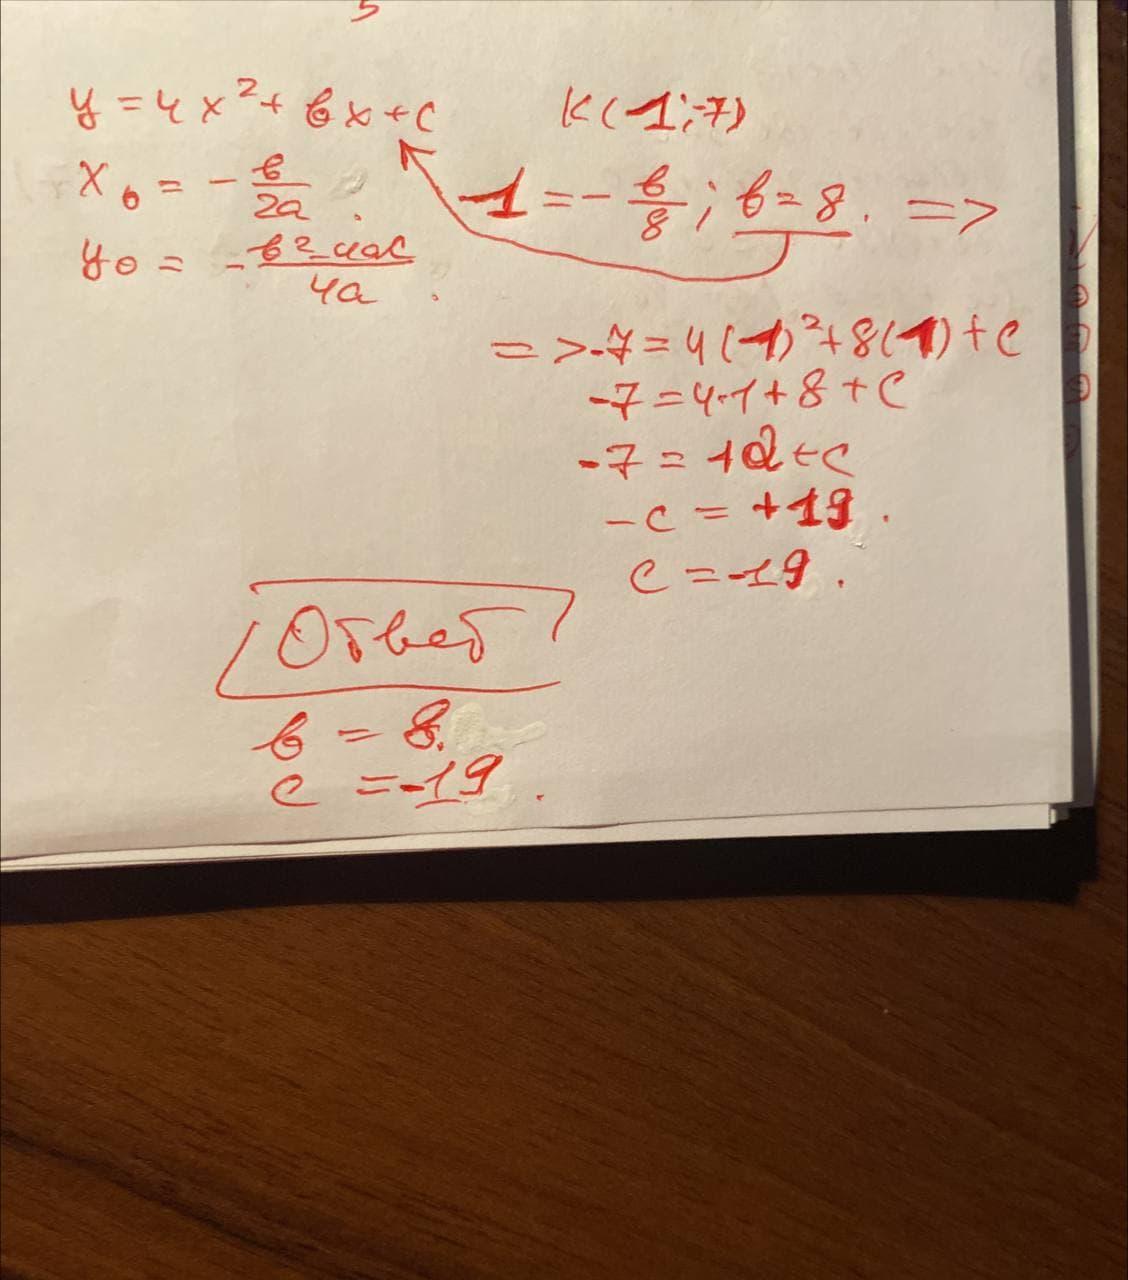 y = 4x² + bx + c K(1; -7)
x₀ = - b/2a . -1 = - b/8 ; b = 8 . =>
y₀ = - b² - 4ac/4a .
=> -7 = 4(-1)² + 8(1) + c
-7 = 4·1 + 8 + c
-7 = +12 + c
-c = +19 .
c = -19 .
Ответ
b = 8.
c = -19 .